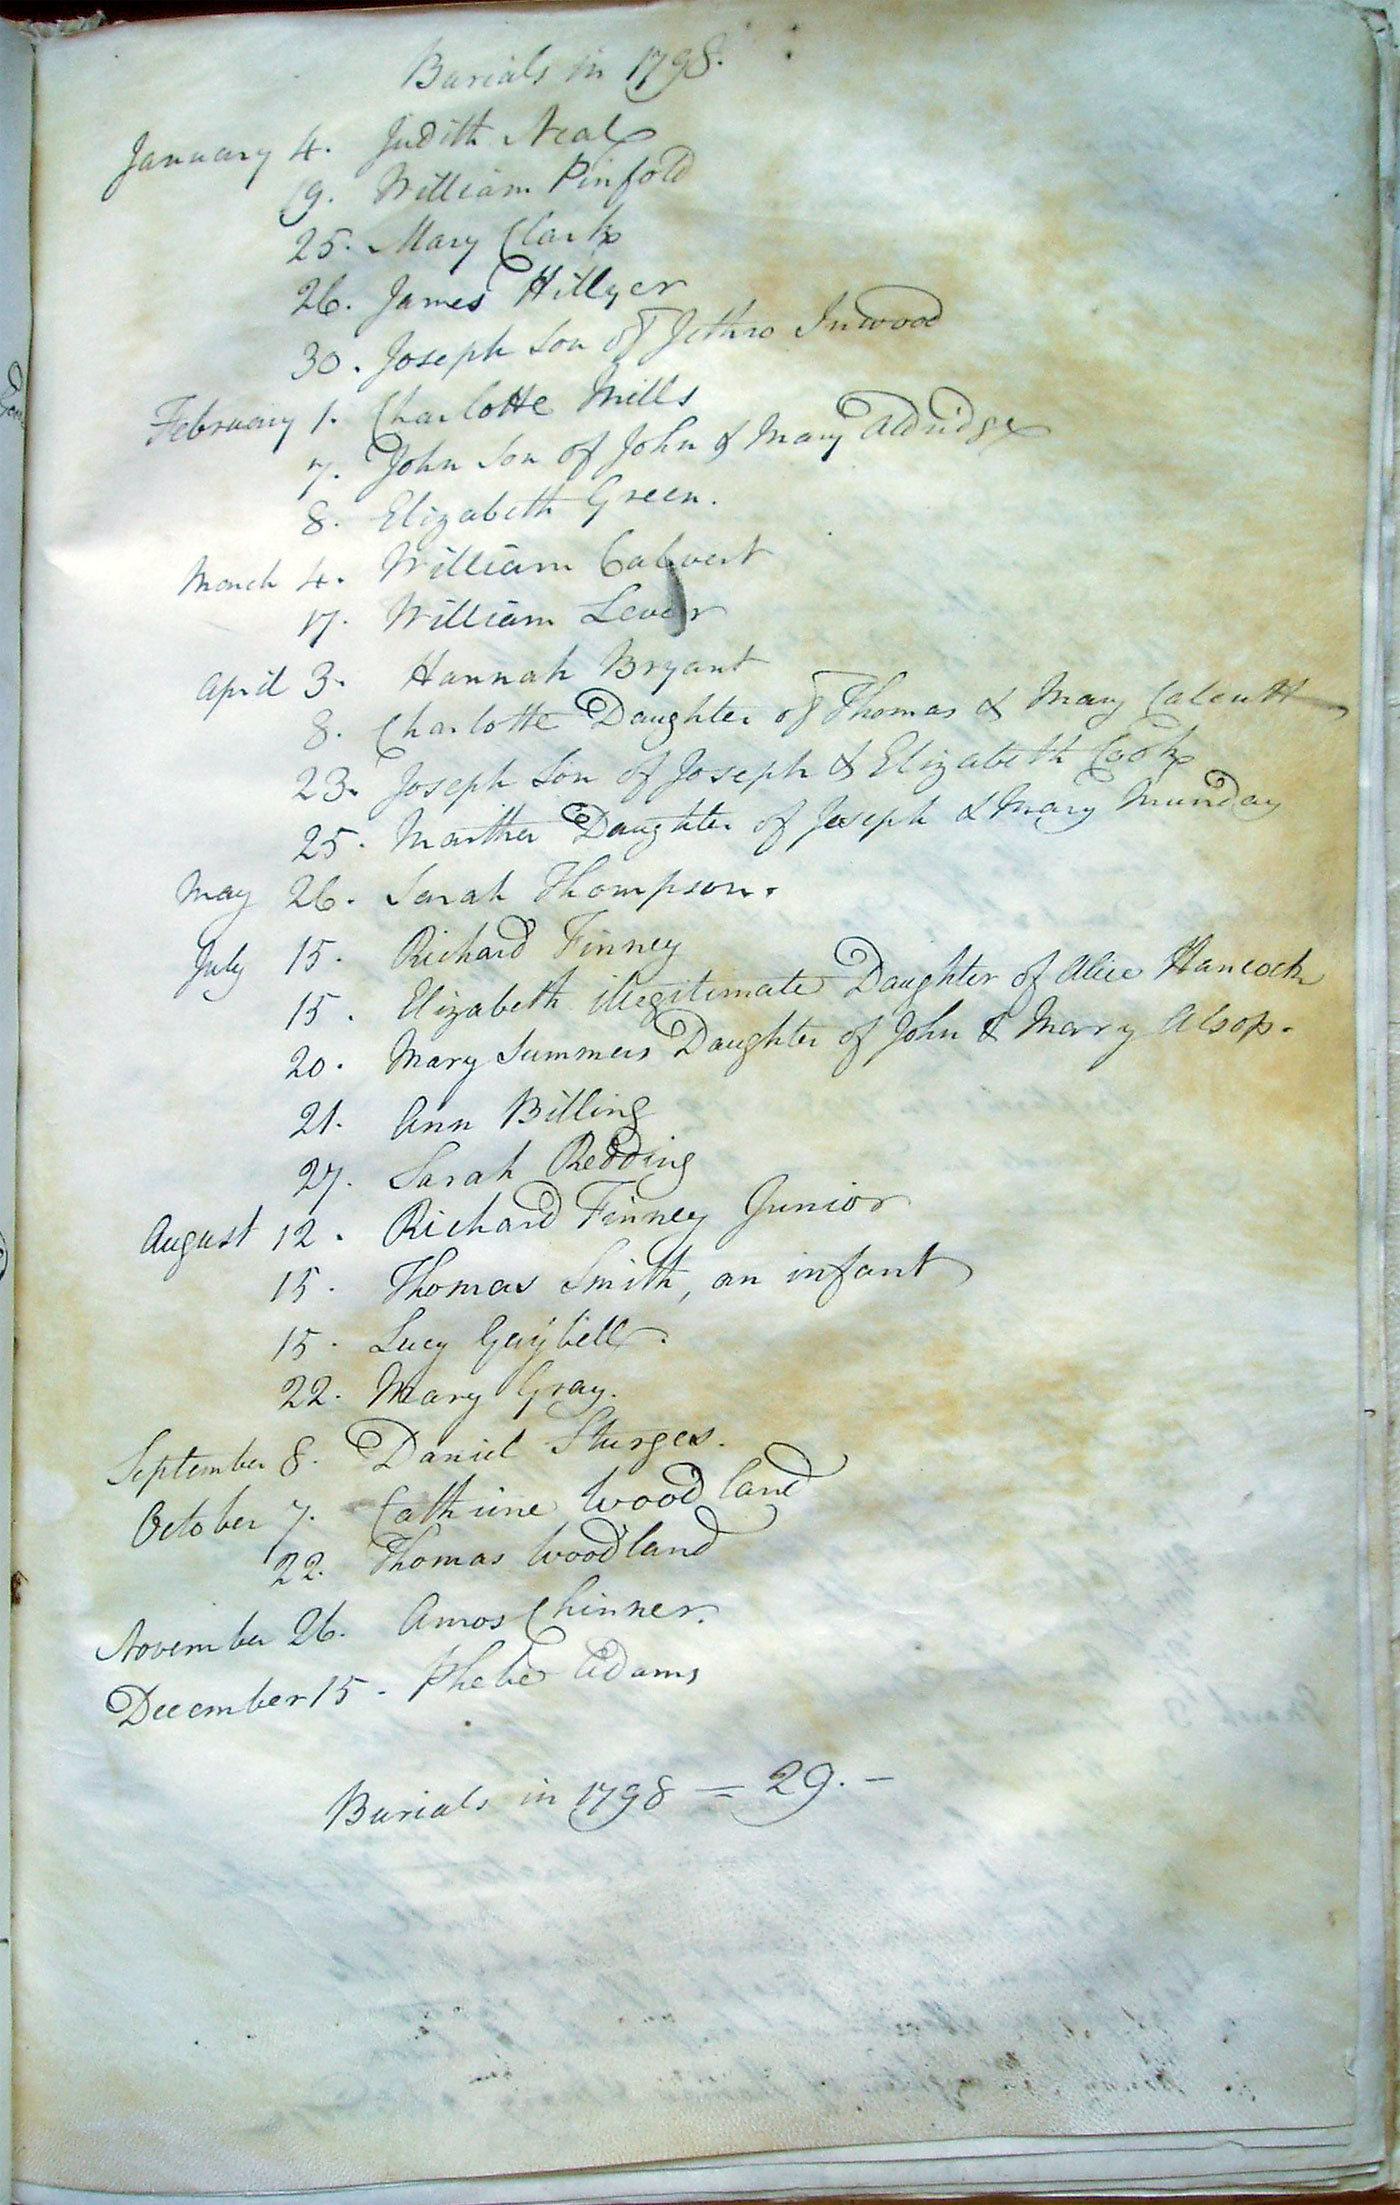 Burials in 1798.
January 4. Judith Neal
19. William Pinfold
25. Mary Clark
26. James Hillyer
30. Joseph Son of Jethro Inwood
February 1. Charlotte Mills
7. John Son of John & Mary Aldridge
8. Elizabeth Green.
March 4. William Calvert
17. William Lever
April 3. Hannah Bryant
8. Charlotte Daughter of Thomas & Mary Calcutt
23. Joseph Son of Joseph & Elizabeth Cook
25. Marther Daughter of Joseph & Mary Munday
May 26. Sarah Thompson.
July 15. Richard Finney
15. Elizabeth illegitimate Daughter of Alice Hancock
20. Mary Summers Daughter of John & Marry Alsop.
21. Ann Billing
27. Sarah Redding
August 12. Richard Finney Junior
15. Thomas Smith, an infant
15. Lucy
22. Mary Gray.
September 8. Daniel Sturges.
October 7. Cathrine Woodland
22. Thomas Woodland
November 26. Amos Chinner.
December 15. Phebe Adams
Burials in 1798 = 29. –